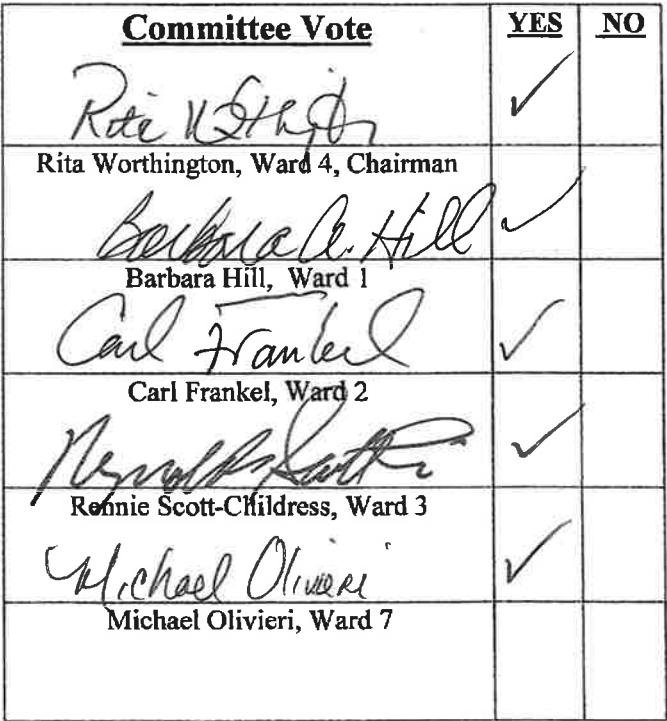 Committee Vote YES NO
Rita Worthington ✓
Rita Worthington, Ward 4, Chairman
Barbara A. Hill ✓
Barbara Hill, Ward 1
Carl Frankel ✓
Carl Frankel, Ward 2
✓
Rennie Scott-Childress, Ward 3
Michael Olivieri ✓
Michael Olivieri, Ward 7